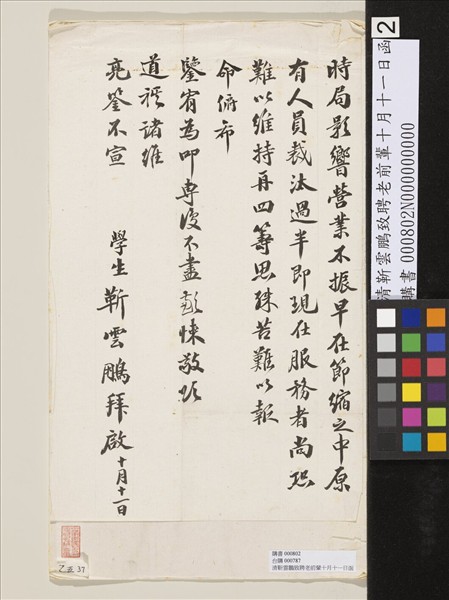 時局影響營業不振早在節縮之中原
有人員裁汰過半即現在服務者尚恐
難以維持再四籌思殊苦難以報
命俯布
鑒宥為叩專復不盡彭悚敬頌
道祺諸維
亮詧不宣
學生靳雲鵬拜啟十月十一日
2
清靳雲鵬致聘老前輩十月十一日函
購書 000802N000000000
購書 000802
台購 000787
清靳雲鵬致聘老前輩十月十一日函
乙五 37